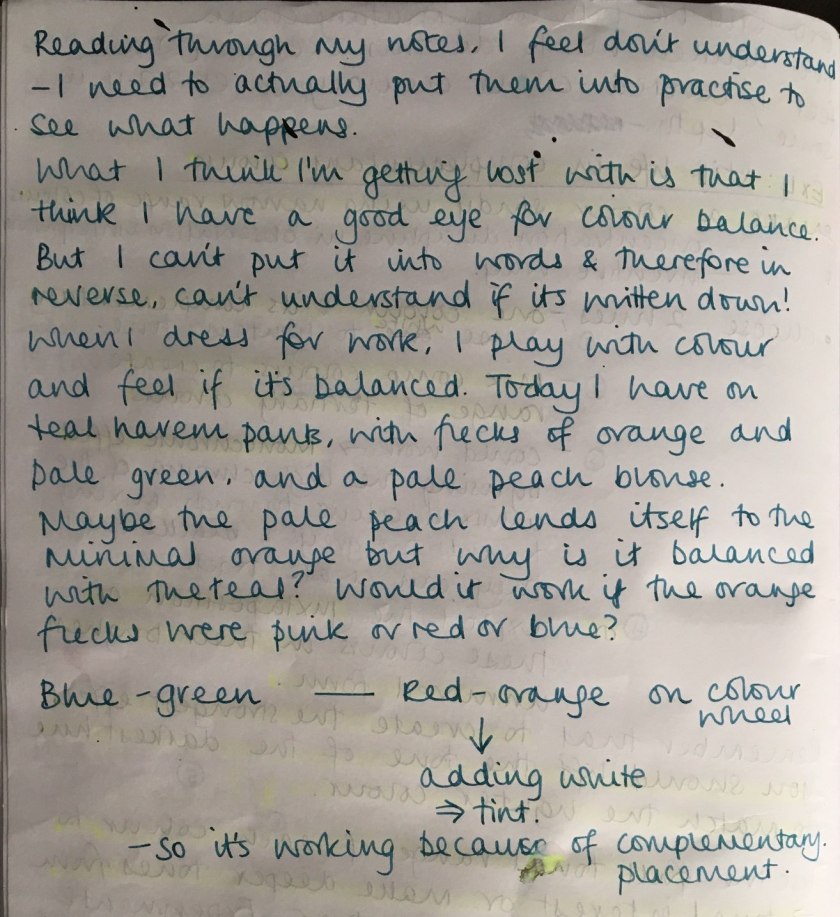 Reading through my notes, I feel don't understand
- I need to actually put them into practise to
see what happens.
What I think I'm getting lost with is that I
think I have a good eye for colour balance.
But I can't put it into words & therefore in
reverse, can't understand if its written down!
When I dress for work, I play with colour
and feel if it's balanced. Today I have on
teal harem pants, with flecks of orange and
pale green, and a pale peach blouse.
Maybe the pale peach lends itself to the
minimal orange but why is it balanced
with the teal? Would it work if the orange
flecks were pink or red or blue?
Blue-green — Red-orange on colour
wheel
↓
adding white
⇒ tint.
- So it's working because of complementary
placement.